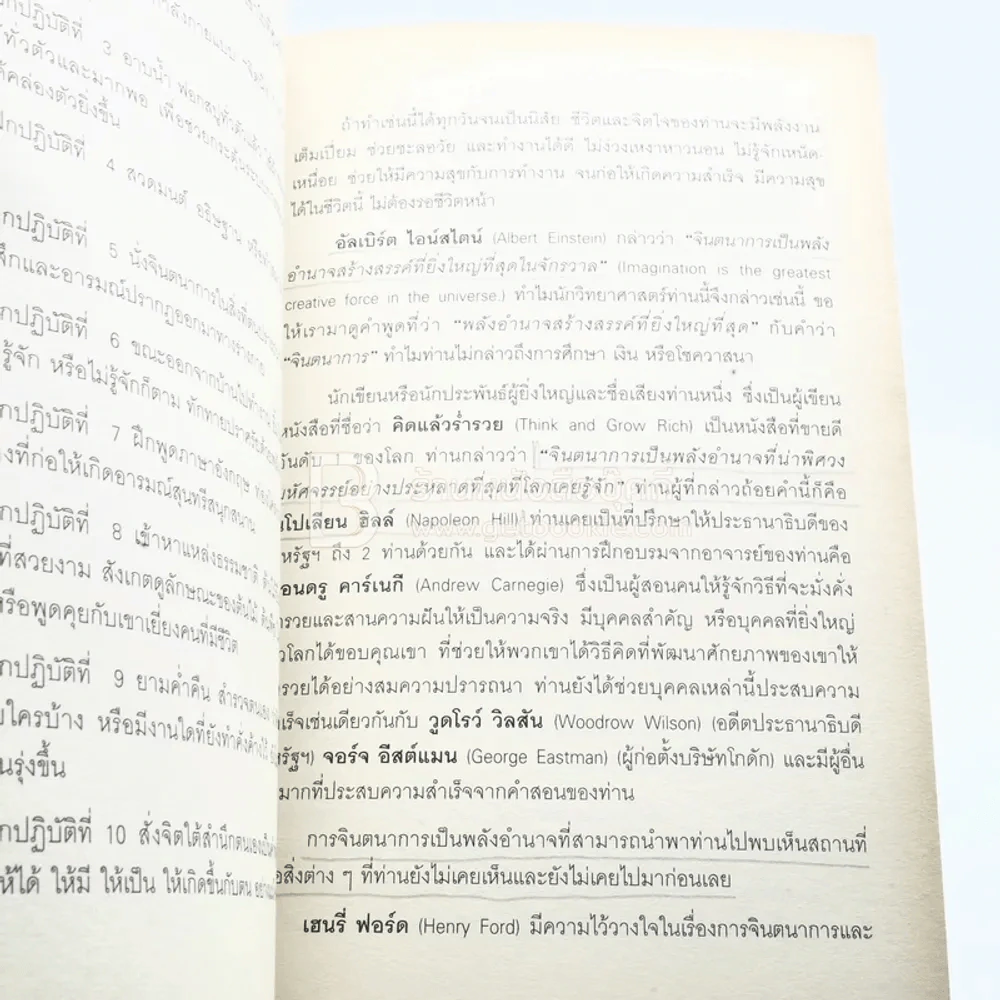 กปฏิบัติที่ 3 อาบน้ำ ฟอกสบู่ทั่วตัวแล้ว
ทั่วตัวและมากพอ เพื่อช่วยกระตุ้นระบบ
คล่องตัวยิ่งขึ้น
กปฏิบัติที่ 4 สวดมนต์ อธิษฐาน
กปฏิบัติที่ 5 นั่งจินตนาการในสิ่งที่ตน
สึกและอารมณ์ปรากฏออกมาทางร่างกาย
กปฏิบัติที่ 6 ขณะออกจากบ้านไปทำงาน
รู้จัก หรือไม่รู้จักก็ตาม ทักทายปราศรัยด้วย
กปฏิบัติที่ 7 ฝึกพูดภาษาอังกฤษ
งที่ก่อให้เกิดอารมณ์สุนทรีสนุกสนาน
กปฏิบัติที่ 8 เข้าหาแหล่งธรรมชาติ
ที่สวยงาม สังเกตดูลักษณะของต้นไม้
หรือพูดคุยกับเขาเยี่ยงคนที่มีชีวิต
กปฏิบัติที่ 9 ยามค่ำคืน สำรวจตนเอง
ใครบ้าง หรือมีงานใดที่ยังทำค้าง
นรุ่งขึ้น
กปฏิบัติที่ 10 สั่งจิตใต้สำนึกตนเอง
ห้ได้ ให้มี ให้เป็น ให้เกิดขึ้นกับตน
ถ้าทำเช่นนี้ได้ทุกวันจนเป็นนิสัย ชีวิตและจิตใจของท่านจะมีพลังงาน
เต็มเปี่ยม ช่วยชะลอวัย และทำงานได้ดี ไม่ง่วงเหงาหาวนอน ไม่รู้จักเหน็ด-
เหนื่อย ช่วยให้มีความสุขกับการทำงาน จนก่อให้เกิดความสำเร็จ มีความสุข
ได้ในชีวิตนี้ ไม่ต้องรอชีวิตหน้า
อัลเบิร์ต ไอน์สไตน์ (Albert Einstein) กล่าวว่า “จินตนาการเป็นพลัง
อำนาจสร้างสรรค์ที่ยิ่งใหญ่ที่สุดในจักรวาล” (Imagination is the greatest
creative force in the universe.) ทำไมนักวิทยาศาสตร์ท่านนี้จึงกล่าวเช่นนี้ ขอ
ให้เรามาดูคำพูดที่ว่า “พลังอำนาจสร้างสรรค์ที่ยิ่งใหญ่ที่สุด” กับคำว่า
“จินตนาการ” ทำไมท่านไม่กล่าวถึงการศึกษา เงิน หรือโชควาสนา
นักเขียนหรือนักประพันธ์ผู้ยิ่งใหญ่และชื่อเสียงท่านหนึ่ง ซึ่งเป็นผู้เขียน
หนังสือที่ชื่อว่า คิดแล้วร่ำรวย (Think and Grow Rich) เป็นหนังสือที่ขายดี
อันดับ 1 ของโลก ท่านกล่าวว่า “จินตนาการเป็นพลังอำนาจที่น่าพิศวง
มหัศจรรย์อย่างประหลาดที่สุดที่โลกเคยรู้จัก” ท่านผู้ที่กล่าวถ้อยคำนี้ก็คือ
นโปเลียน ฮิลล์ (Napoleon Hill) ท่านเคยเป็นที่ปรึกษาให้ประธานาธิบดีของ
หรัฐฯ ถึง 2 ท่านด้วยกัน และได้ผ่านการฝึกอบรมจากอาจารย์ของท่านคือ
อนดรู คาร์เนกี (Andrew Carnegie) ซึ่งเป็นผู้สอนคนให้รู้จักวิธีที่จะมั่งคั่ง
ำรวยและสานความฝันให้เป็นความจริง มีบุคคลสำคัญ หรือบุคคลที่ยิ่งใหญ่
ั่วโลกได้ขอบคุณเขา ที่ช่วยให้พวกเขาได้วิธีคิดที่พัฒนาศักยภาพของเขาให้
ำรวยได้อย่างสมความปรารถนา ท่านยังได้ช่วยบุคคลเหล่านี้ประสบความ
ำเร็จเช่นเดียวกันกับ วูดโรว์ วิลสัน (Woodrow Wilson) (อดีตประธานาธิบดี
หรัฐฯ) จอร์จ อีสต์แมน (George Eastman) (ผู้ก่อตั้งบริษัทโกดัก) และมีผู้อื่น
มากที่ประสบความสำเร็จจากคำสอนของท่าน
การจินตนาการเป็นพลังอำนาจที่สามารถนำพาท่านไปพบเห็นสถานที่
อสิ่งต่าง ๆ ที่ท่านยังไม่เคยเห็นและยังไม่เคยไปมาก่อนเลย
เฮนรี่ ฟอร์ด (Henry Ford) มีความไว้วางใจในเรื่องการจินตนาการและ